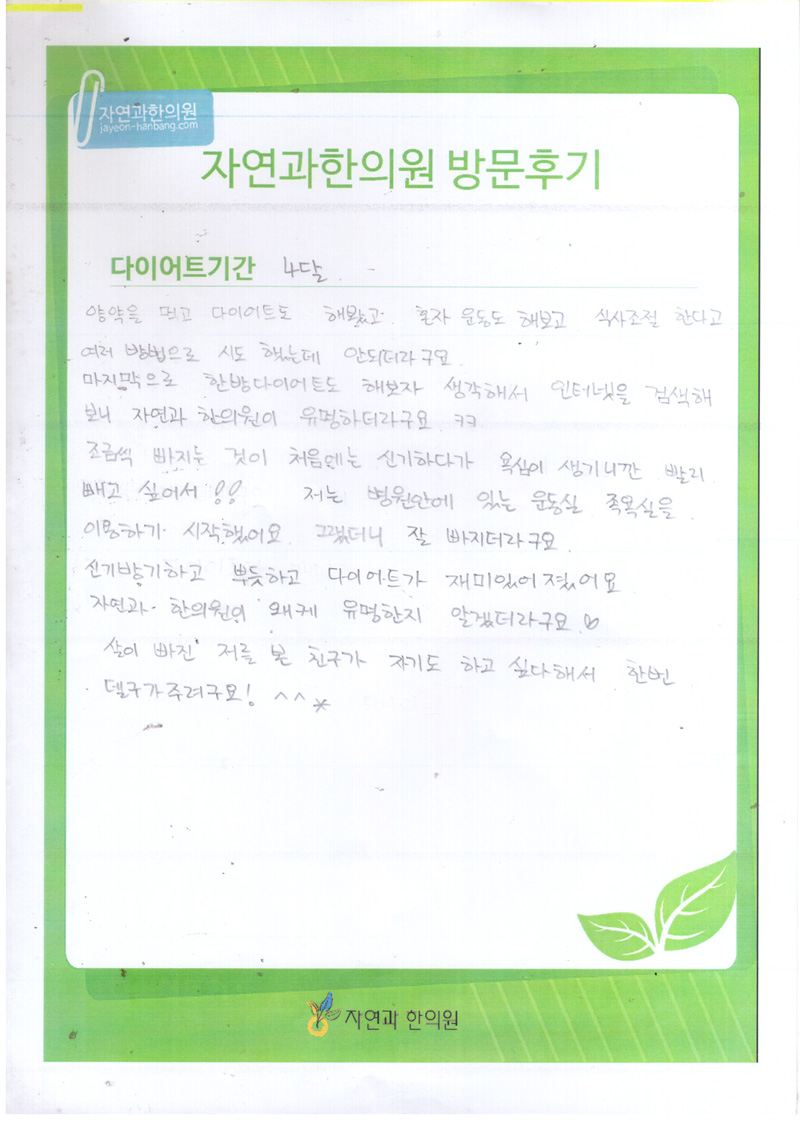 자연과한의원
jayeon-hanbang.com
자연과한의원 방문후기
다이어트기간 4달
양약을 먹고 다이어트도 해봤고 혼자 운동도 해보고 식사조절 한다고
여러 방법으로 시도 했는데 안되더라구요
마지막으로 한방다이어트도 해보자 생각해서 인터넷을 검색해
보니 자연과 한의원이 유명하더라구요 ㅋㅋ
조금씩 빠지는 것이 처음에는 신기하다가 욕심이 생기니깐 빨리
빼고 싶어서!! 저는 병원안에 있는 운동실 족욕실을
이용하기 시작했어요 그랬더니 잘 빠지더라구요
신기방기하고 뿌듯하고 다이어트가 재미있어졌어요
자연과 한의원의 왜케 유명한지 알겠더라구요♡
살이 빠진 저를 본 친구가 자기도 하고 싶다해서 한번
델구가주려구요! ^^*
자연과 한의원